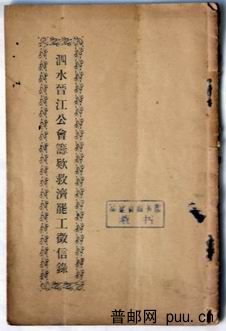 泗水晉江公會籌欵救濟罷工徵信錄
普邮网 puu.cn